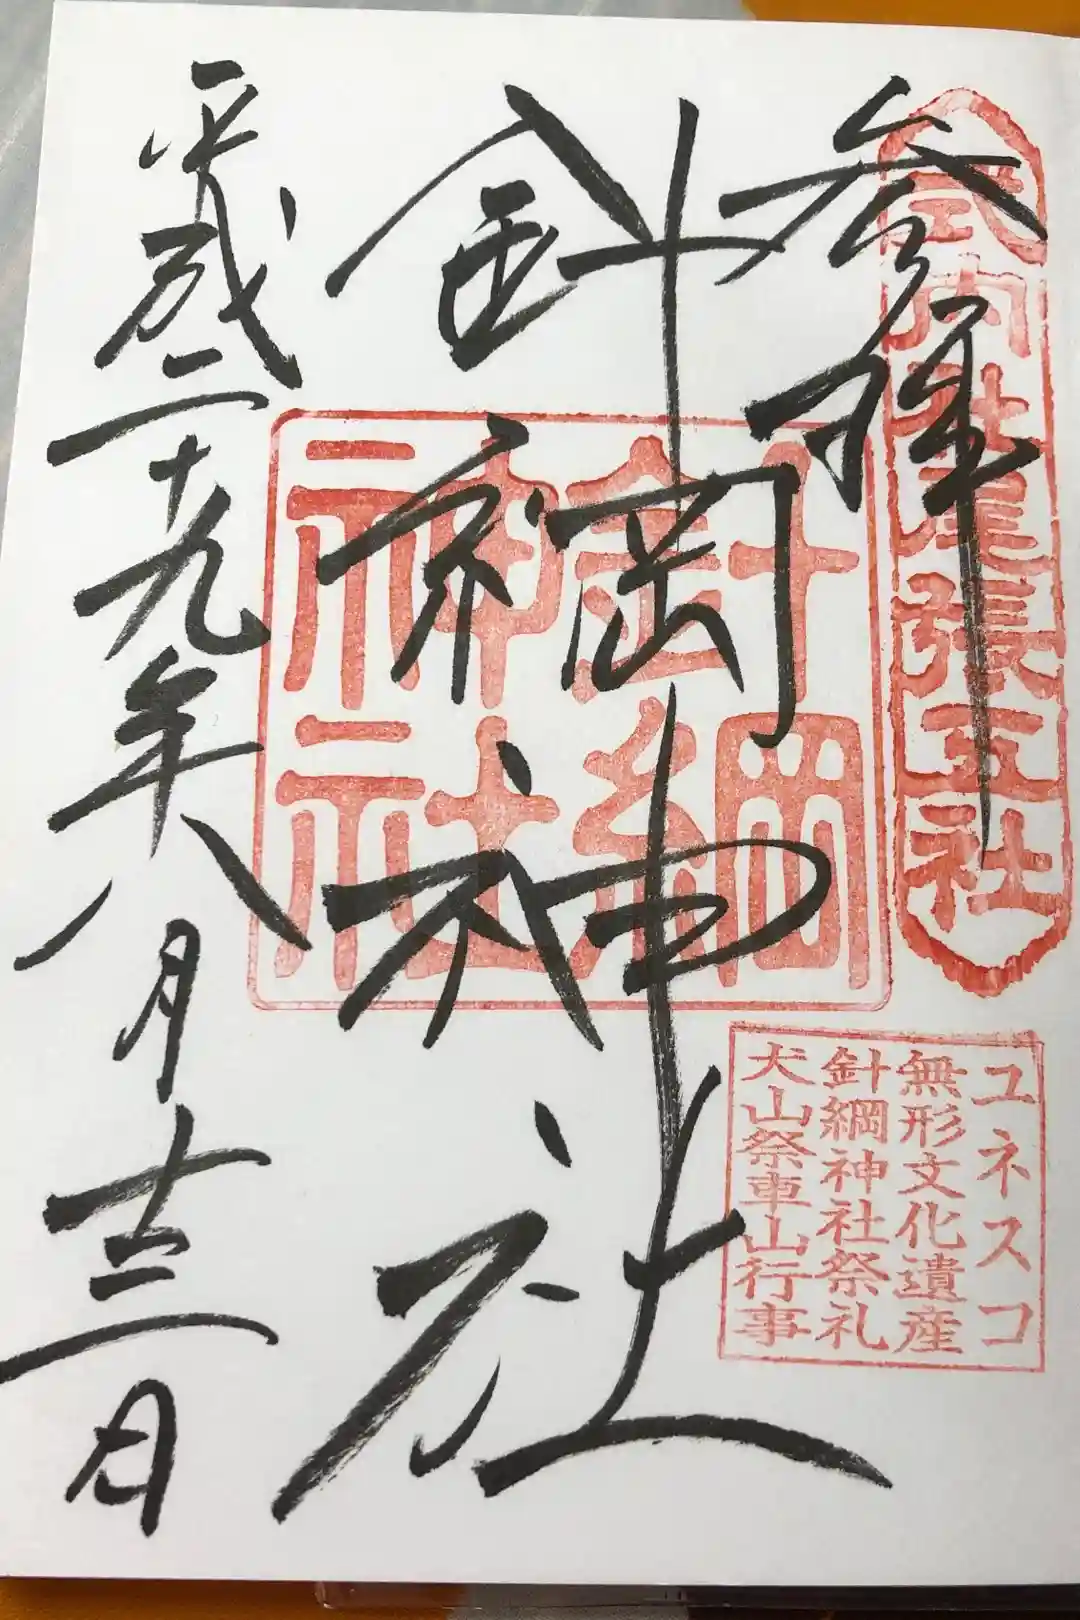 参拝
式内社尾張五社
針綱神社
針綱
神社
ユネスコ
無形文化遺産
針綱神社祭礼
犬山祭車山行事
平成二十九年八月十三日